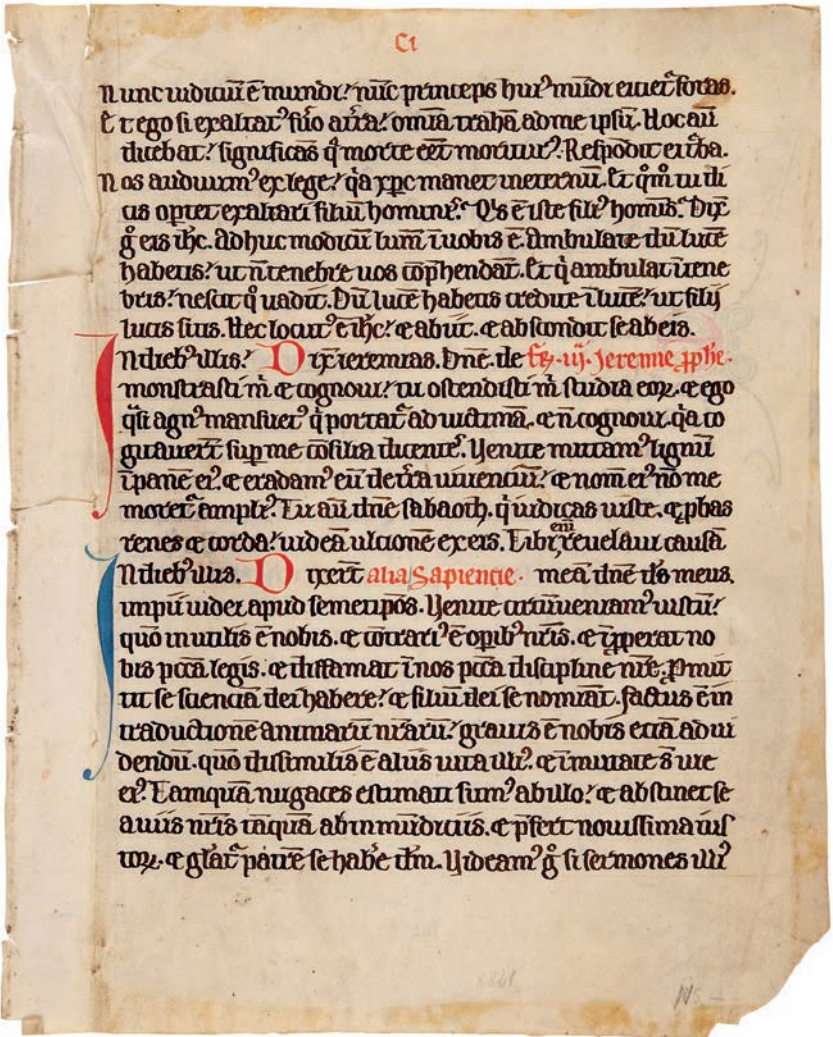 Ci
Nunc iudiciū ē mundi. nūc princeps huiꝰ mūdi eicietᷣ foras.
Et ego si exaltatꝰ fuo a t̄ra. omīa trahā ad me ipsū. Hoc aū
dicebat. significās q̄ morte eēt morituꝰ. Respōdit ei t̄ba.
Nos audiuimꝰ ex lege. q̇a xp̄c manet in eternū. Et qūo tu di
cis oportet exaltari filiū hominis. Qis ē iste filiꝰ homīs. Dix̄
g̊ eis ih̄c. Adhuc modicū lum̄ ī uobis ē. Ambulate dū lucē
habetis. ut n̄ tenebre uos cōp̄hendāt. Et q̇ ambulat ī tene
bris. nescit q̊ uadit. Dū lucē habetis credite ī lucē. ut filij
lucis sitis. Hec locutꝰ ē ih̄c. ⁊ abiit. ⁊ abscondit se ab eis.
In diebꝰ illis. Dix̄ ieremias. Dn̄e. de f̄r. iij. Jeremie ꝓph̄e.
monstrasti m̄ ⁊ cognoui. tu ostendisti m̄ studia eoꝝ. ⁊ ego
q̇si agnꝰ mansuetꝰ q̇ portatᷣ ad uictimā. ⁊ n̄ cognoui. q̇a co
gitauert̄ sup me cōsilia dicentes. Venite mittamꝰ lignū
ī panē eiꝰ. ⁊ eradamꝰ eū de t̄ra uiuenciū. ⁊ nom̄ eiꝰ nō me
moretᷣ ampliꝰ. Tu aū dn̄e sabaoth. q̇ iudicas iuste. ⁊ ꝓbas
renes ⁊ corda. uideā ulcionē ex eis. Tibi em̄ reuelaui causā
In diebꝰ illis. Dixert̄ alia Sapiencie. meā dn̄e ds̄ meus.
impii uidec apud semetip̄os. Venite circūueniamꝰ iustū.
quō inutilis ē nobis. ⁊ cōtrariꝰ ē oꝑibꝰ nr̄is. ⁊ īꝓperat no
bis pc̄cā legis. ⁊ diffamat ī nos pc̄cā discipline nr̄e. Promit
tit se scienciā dei habere. ⁊ filiū dei se nomīat. Factus ē in
traductionē animarū nr̄arū. grauis ē nobis eciā ad ui
dendū. quō dissimilis ē aliis uita illiꝰ. ⁊ īmutate s̄ uie
eiꝰ. Tamquā nugaces estimati sumꝰ ab illo. ⁊ abstinet se
a uiis nr̄is tāquā ab inmūdiciis. ⁊ p̄fert nouissima ius
toꝝ. ⁊ gl̄atᷣ patrē se hab̄e dm̄. Videamꝰ g̊ si sermones illiꝰ